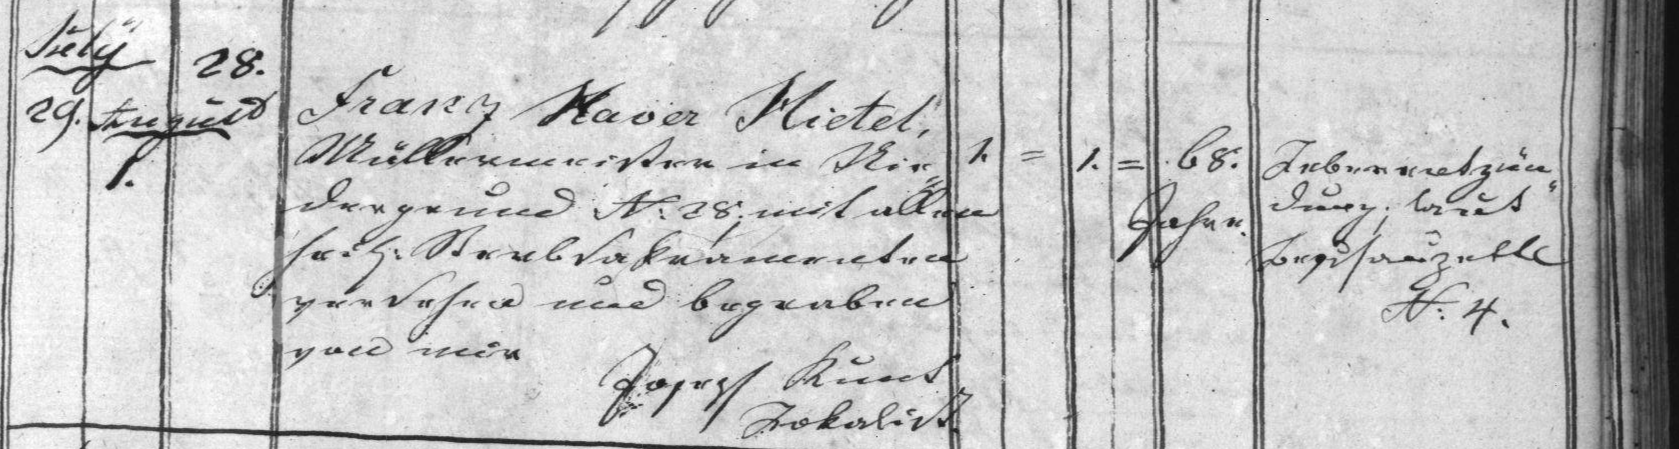 July
29.
August
1.
28.
Franz Xaver Hietel,
Müllermeister in Nie„
dergrund N: 28, mit allen
heil: Sterbsakramenten
versehen und begraben
von mir
Joseph Kunt
Lokalist.
1. = 1. = 68.
Jahre.
Leberentzün„
dung, laut
Beschauzettl
N: 4.